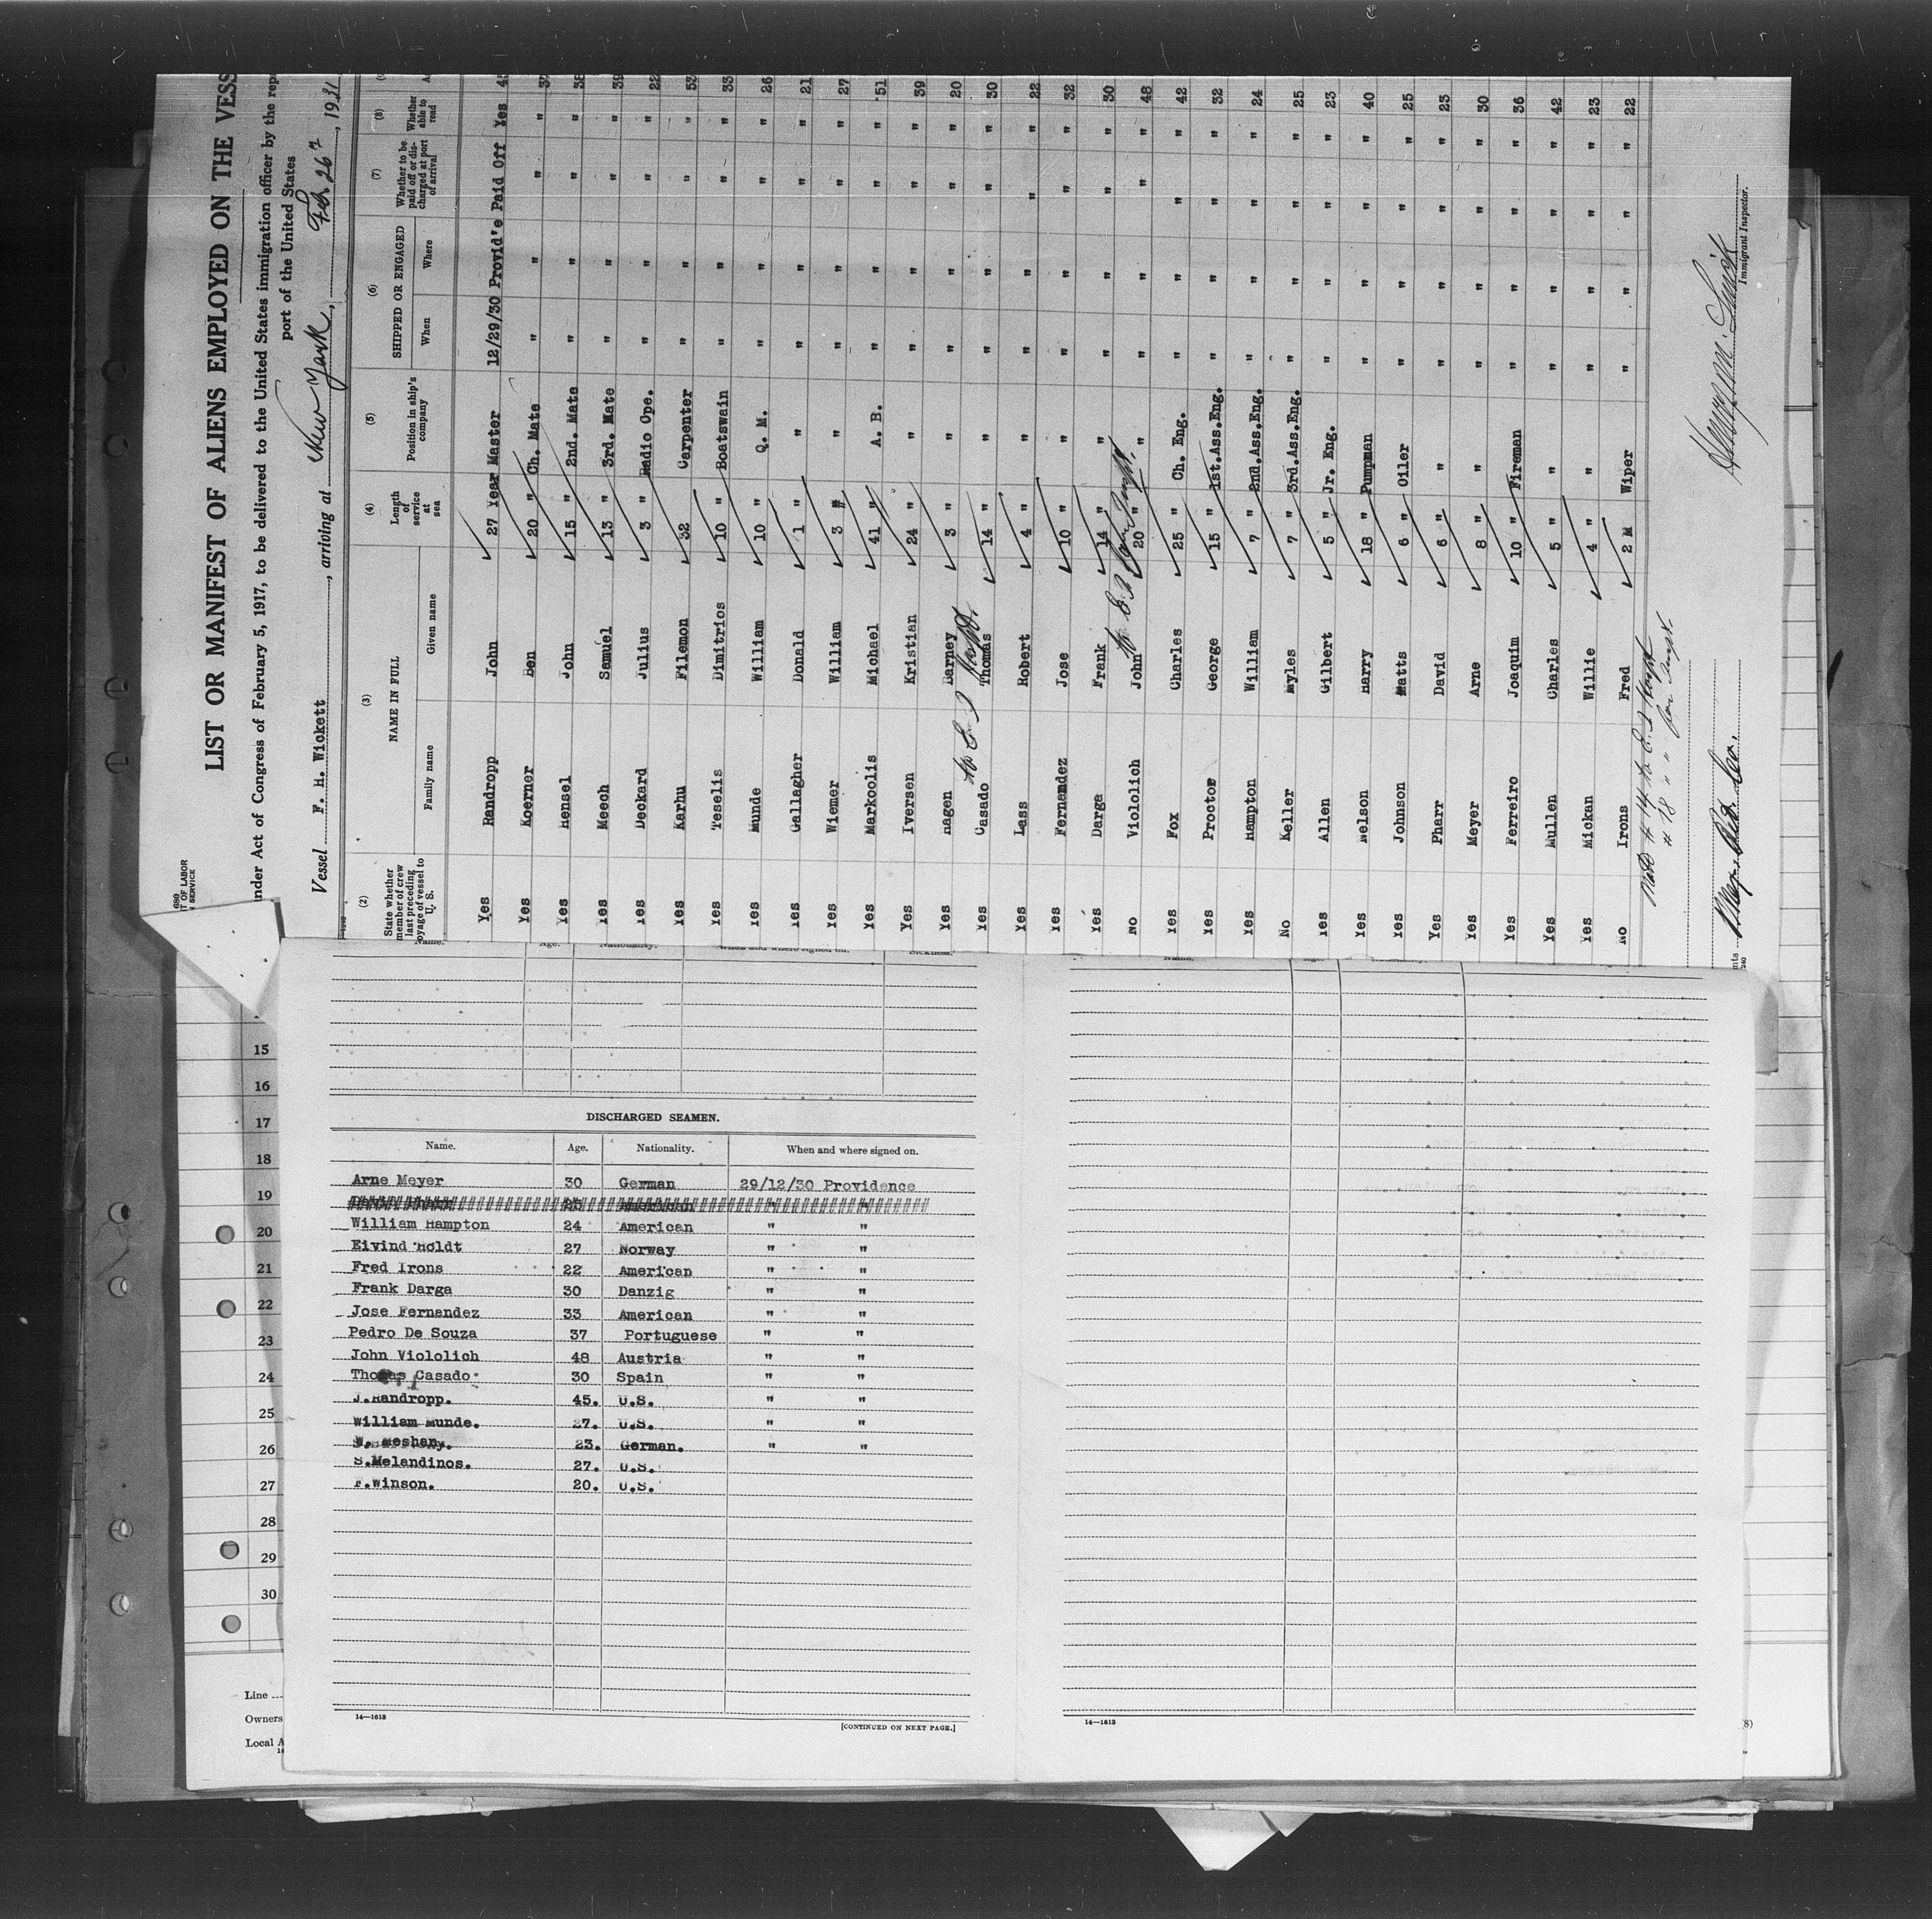 LIST OR MANIFEST OF ALIENS EMPLOYED ON THE VESS
nder Act of Congress of February 5, 1917, to be delivered to the United States immigration officer by the rep
port of the United States
Vessel F. H. Wickett, arriving at New York, Feb. 26, 1931
680
T OF LABOR
N SERVICE
(2) (3) (4) (5) (6) (7) (8)
State whether member of crew last preceding voyage of vessel to U. S. NAME IN FULL Length of service at sea Position in ship's company SHIPPED OR ENGAGED Whether to be paid off or discharged at port of arrival Whether able to read
Family name Given name When Where
Yes Randropp John 27 Year Master 12/29/30 Provid'e Paid Off Yes 45
Yes Koerner Ben 20 " Ch. Mate " " " "
Yes Hensel John 15 " 2nd. Mate " " " " 38
Yes Meech Samuel 13 " 3rd. Mate " " " " 39
Yes Deckard Julius 3 " Radio Ope. " " " " 22
Yes Karhu Filemon 32 Carpenter " " " " 53
Yes Teselis Dimitrios 10 " Boatswain " " " " 33
Yes Munde William 10 " Q. M. " " " " 26
Yes Gallagher Donald 1 " " " " " " 21
Yes Wiemer William 3 " " " " " " 27
Yes Markoolis Michael 41 " A. B. " " " " 51
Yes Iversen Kristian 24 " " " " " " 39
Yes Hagen Barney 3 " " " " " " 20
Yes Casado Thomas 14 " " " " " " 30
Yes Lass Robert 4 " " " " " " 22
Yes Fernamdez Jose 10 " " " " " " 32
Yes Darga Frank 14 " " " " " " 30
No Viololich John 20 " " " " " " 48
Yes Fox Charles 25 " Ch. Eng. " " " " 42
Yes Proctor George 15 " 1st.Ass.Eng. " " " " 32
Yes Hampton William 7 " 2nd.Ass.Eng. " " " " 24
No Keller Myles 7 " 3rd.Ass.Eng. " " " " 25
Yes Allen Gilbert 5 " Jr. Eng. " " " " 23
Yes Nelson Harry 18 " Pumpman " " " " 40
Yes Johnson Matts 6 " Oiler " " " " 25
Yes Pharr David 6 " " " " " " 23
Yes Meyer Arne 8 " " " " " " 30
Yes Ferreiro Joaquim 10 " Fireman " " " " 36
Yes Mullen Charles 5 " " " " " " 42
Yes Mickan Willie 4 " " " " " " 23
No Irons Fred 2 M Wiper " " " " 22
Immigrant Inspector.
Name. Age. Nationality. When and where signed on. Sickness.
15
16
17
18
19
20
21
22
23
24
25
26
27
28
29
30
DISCHARGED SEAMEN.
Name. Age. Nationality. When and where signed on.
Arne Meyer 30 German 29/12/30 Providence
William Hampton 24 American " "
Eivind Holdt 27 Norway " "
Fred Irons 22 American " "
Frank Darga 30 Danzig " "
Jose Fernandez 33 American " "
Pedro De Souza 37 Portuguese " "
John Viololich 48 Austria " "
Thomas Casado 30 Spain " "
J.Randropp. 45. U.S. " "
William Munde. 27. U.S. " "
W. Meshan. 23. German. " "
S.Melandinos. 27. U.S.
F.Winson. 20. U.S.
14—1613
[CONTINUED ON NEXT PAGE.]
14—1613
Line
Owners
Local A